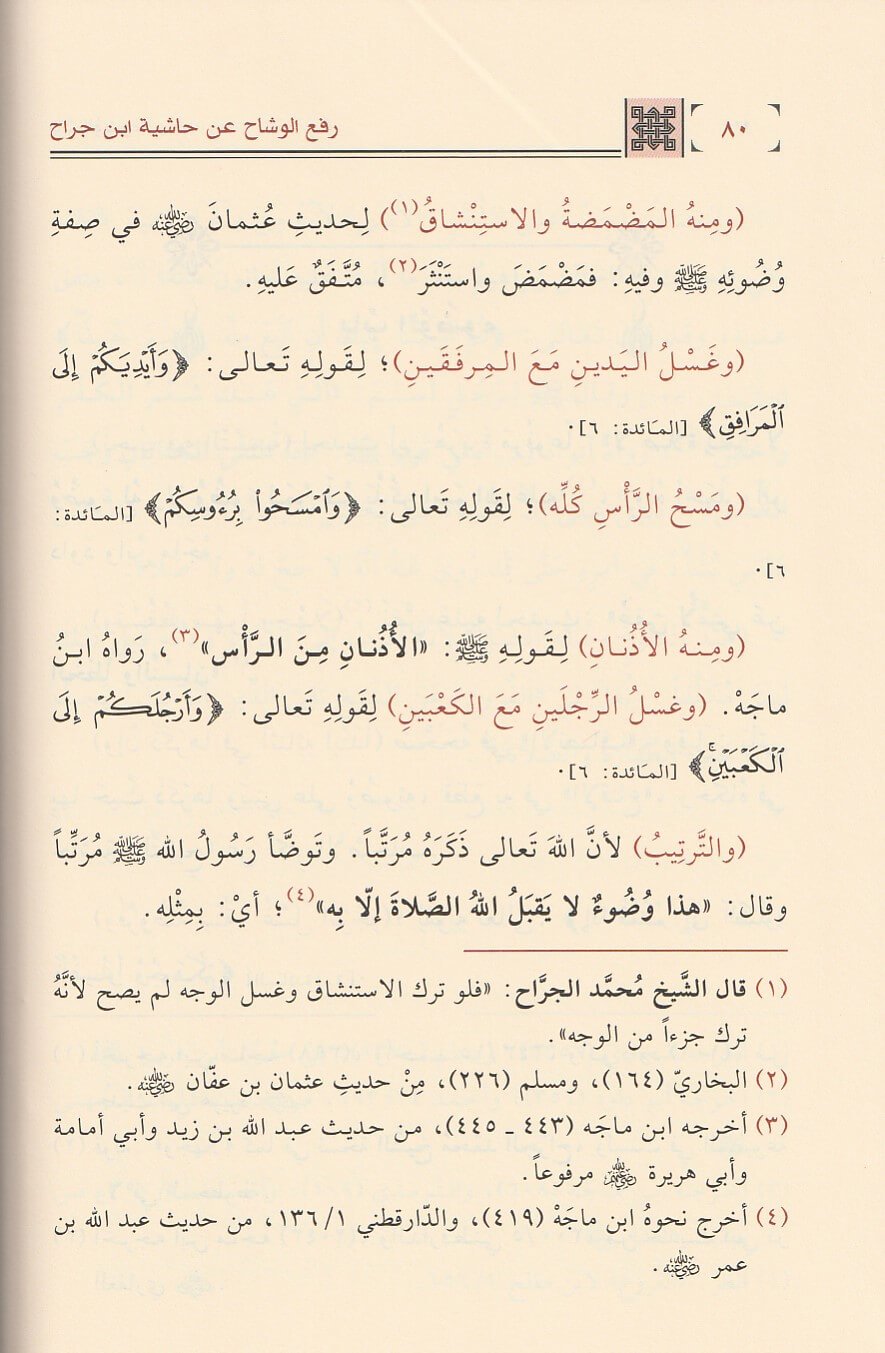 ٨٠
رفع الوشاح عن حاشية ابن جراح
(ومِنهُ المَضْمَضةُ والاستِنْشاقُ(١)) لِحديثِ عُثمانَ رضي الله عنه في صِفةِ
وُضُوئِهِ ﷺ وفيهِ: فمَضْمَضَ واستَنْثَرَ(٢)، مُتَّفَقٌ عَليهِ.
(وغَسْلُ اليَدينِ مَعَ المِرفَقَينِ)؛ لِقَولِهِ تَعالى: ﴿وَأَيْدِيَكُمْ إِلَى
الْمَرَافِقِ﴾ [المائدة: ٦].
(ومَسْحُ الرَّأْسِ كُلِّه)؛ لِقَولِهِ تَعالى: ﴿وَامْسَحُوا بِرُءُوسِكُمْ﴾ [المائدة:
٦].
(ومِنهُ الأُذُنانِ) لِقَولِهِ ﷺ: «الأُذُنانِ مِنَ الرَّأْس»(٣)، رَواهُ ابنُ
ماجَهْ. (وغسْلُ الرِّجْلَينِ مَعَ الكَعْبَينِ) لِقَولِهِ تَعالى: ﴿وَأَرْجُلَكُمْ إِلَى
الْكَعْبَيْنِ ۚ﴾ [المائدة: ٦].
(والتَّرتِيبُ) لأنَّ اللهَ تَعالى ذَكَرَهُ مُرَتَّباً. وتَوضَّأ رَسُولُ الله ﷺ مُرَتِّباً
وقال: «هذا وُضُوءٌ لا يَقبَلُ اللهُ الصَّلاةَ إلّا بِه»(٤)؛ أيْ: بِمِثْلِه.
(١) قال الشَّيخ مُحمَّد الجرَّاح: «فلو ترك الاستنشاق وغسل الوجه لم يصح لأنَّهُ
ترك جزءاً من الوجه».
(٢) البخاريّ (١٦٤)، ومسلم (٢٢٦)، مِنْ حديثِ عثمان بن عفّان رضي الله عنه.
(٣) أخرجه ابن ماجَه (٤٤٣ ـ ٤٤٥)، من حديث عبد الله بن زيد وأبي أمامة
وأبي هريرة رضي الله عنهم مرفوعاً.
(٤) أخرج نحوهُ ابن ماجَهْ (٤١٩)، والدّارقطني ١/ ١٣٦، من حديث عبد الله بن
عمر رضي الله عنه.